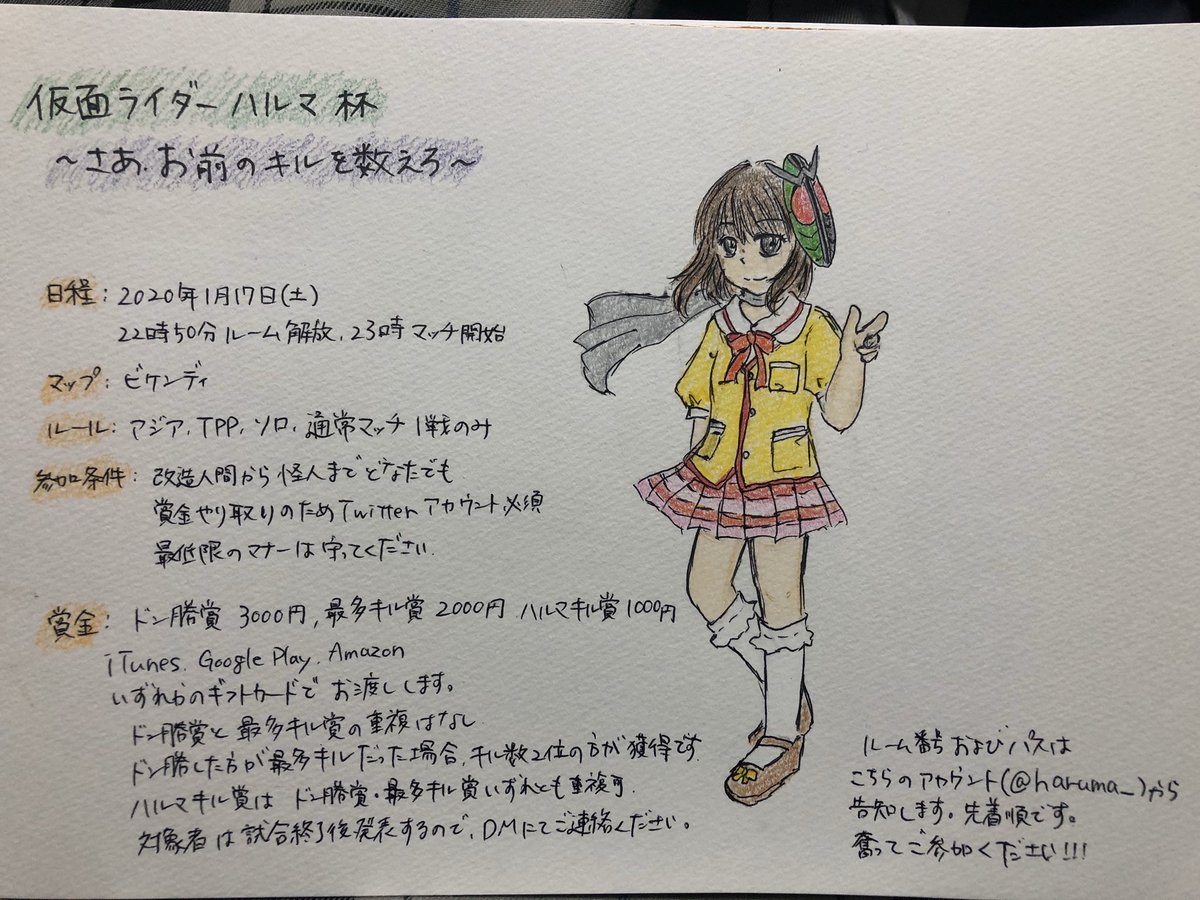 仮面ライダーハルマ杯
〜さあ、お前のキルを数えろ〜
日程：2020年1月17日(土)
22時50分ルーム解放、23時マッチ開始
マップ：ビケンディ
ルール：アジア、TPP、ソロ、通常マッチ1戦のみ
参加条件：改造人間から怪人までどなたでも
賞金やり取りのためTwitterアカウント必須
最低限のマナーは守ってください.
賞金：ドン勝賞 3000円, 最多キル賞 2000円 ハルマキル賞 1000円
iTunes. Google Play. Amazon
いずれかのギフトカードでお渡しします。
ドン勝賞と最多キル賞の重複はなし
ドン勝した方が最多キルだった場合、キル数2位の方が獲得です.
ハルマキル賞はドン勝賞・最多キル賞いずれとも重複可.
対象者は試合終了後発表するので、DMにてご連絡ください。
ルーム番号およびパスは
こちらのアカウント(@haruma_)から
告知します。先着順です。
奮ってご参加ください!!!